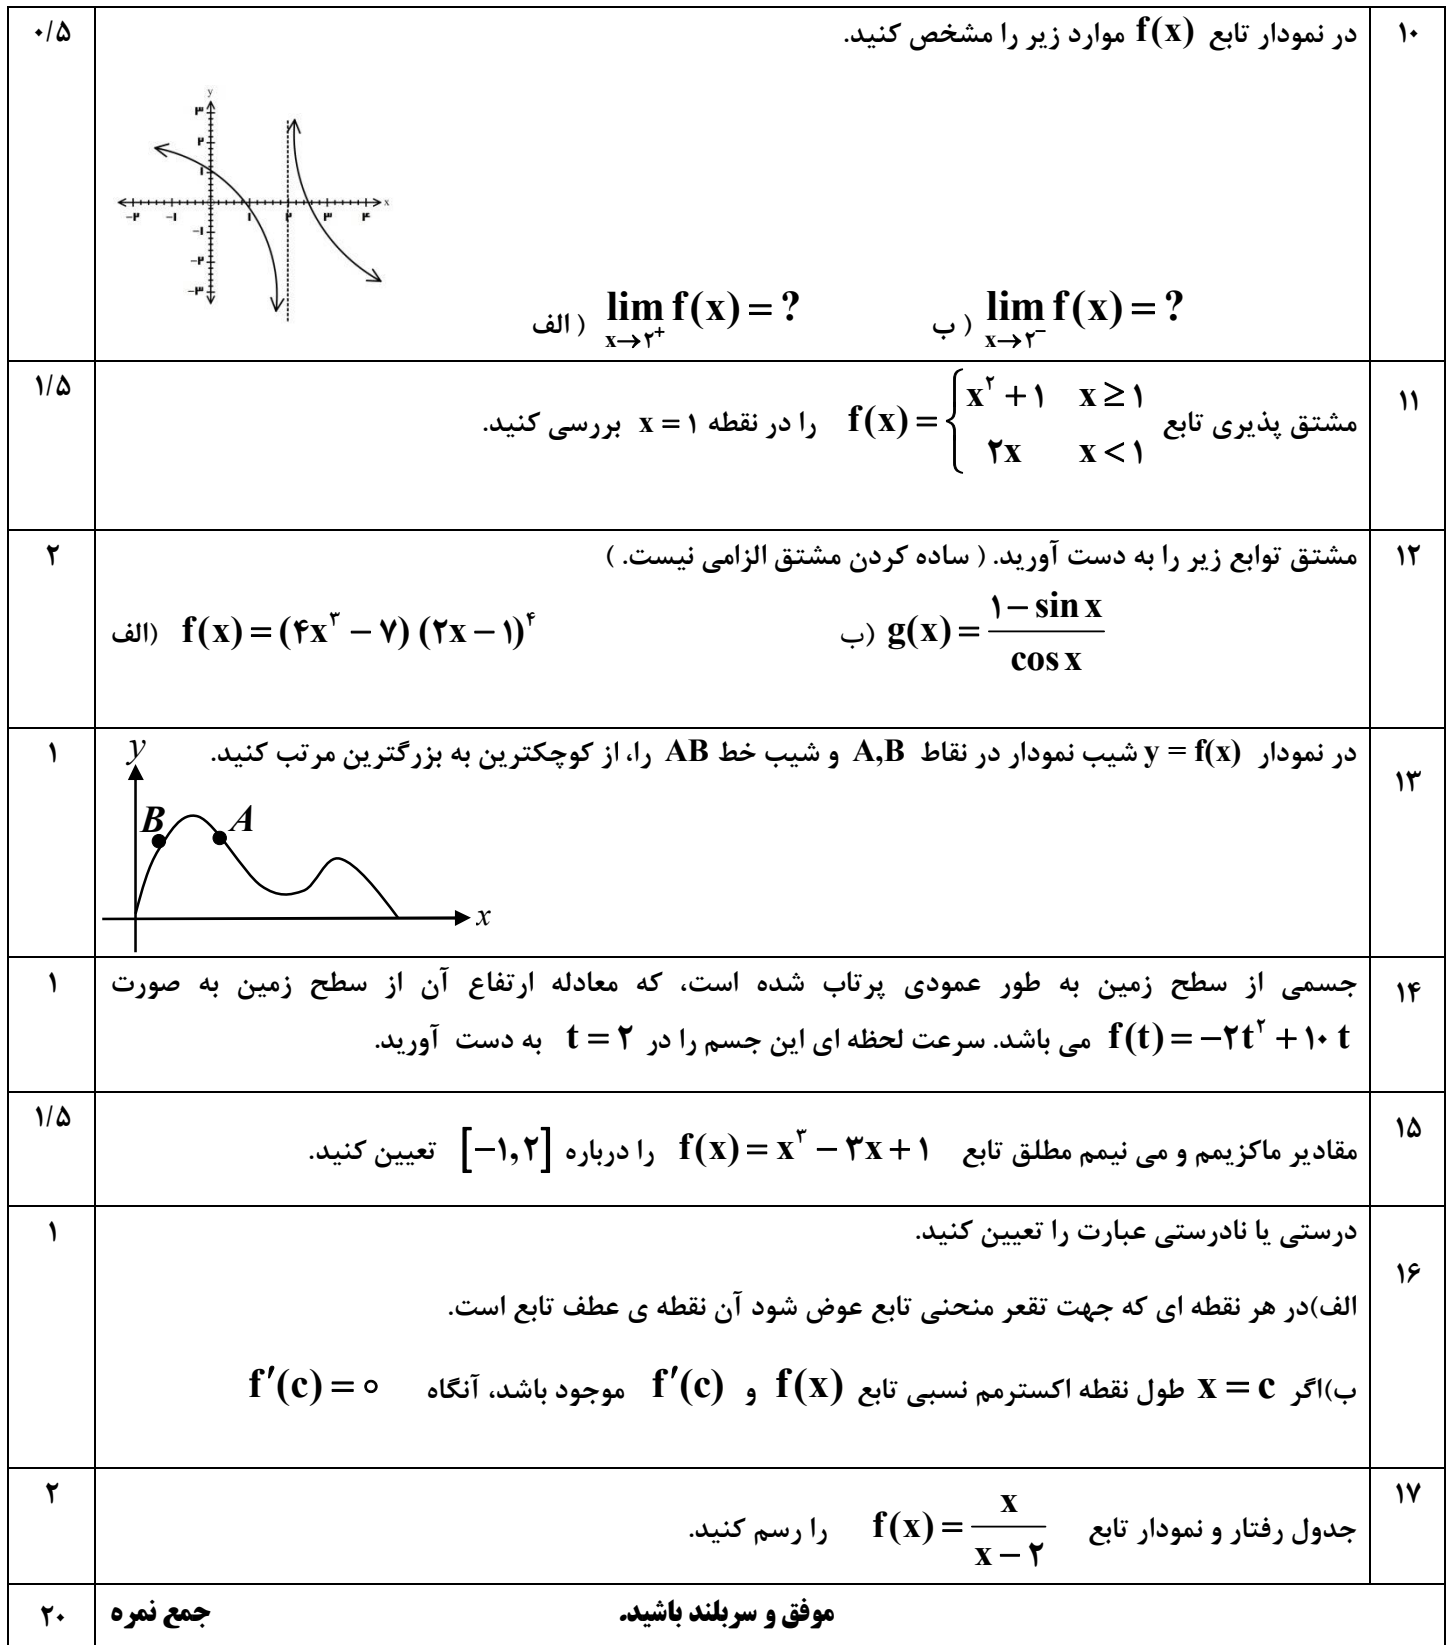 ۱۰ در نمودار تابع f(x) موارد زیر را مشخص کنید. ۰/۵
y
۳
۲
۱
−۲ −۱ ۱ ۲ ۳ ۴ x
−۱
−۲
−۳
الف ) lim x→۲⁺ f(x) = ? ب ) lim x→۲⁻ f(x) = ?
۱۱ مشتق پذیری تابع f(x) = { x² + ۱ x ≥ ۱ را در نقطه x = ۱ بررسی کنید. ۱/۵
۲x x < ۱
۱۲ مشتق توابع زیر را به دست آورید. ( ساده کردن مشتق الزامی نیست. ) ۲
الف) f(x) = (۴x³ − ۷) (۲x − ۱)⁴ ب) g(x) = (۱ − sin x) / cos x
۱۳ در نمودار y = f(x) شیب نمودار در نقاط A,B و شیب خط AB را، از کوچکترین به بزرگترین مرتب کنید. ۱
y
B A
x
۱۴ جسمی از سطح زمین به طور عمودی پرتاب شده است، که معادله ارتفاع آن از سطح زمین به صورت ۱
f(t) = −۲t² + ۱۰ t می باشد. سرعت لحظه ای این جسم را در t = ۲ به دست آورید.
۱۵ مقادیر ماکزیمم و می نیمم مطلق تابع f(x) = x³ − ۳x + ۱ را درباره [−۱,۲] تعیین کنید. ۱/۵
۱۶ درستی یا نادرستی عبارت را تعیین کنید. ۱
الف)در هر نقطه ای که جهت تقعر منحنی تابع عوض شود آن نقطه ی عطف تابع است.
ب)اگر x = c طول نقطه اکسترمم نسبی تابع f(x) و f′(c) موجود باشد، آنگاه f′(c) = ۰
۱۷ جدول رفتار و نمودار تابع f(x) = x / (x − ۲) را رسم کنید. ۲
موفق و سربلند باشید. جمع نمره ۲۰